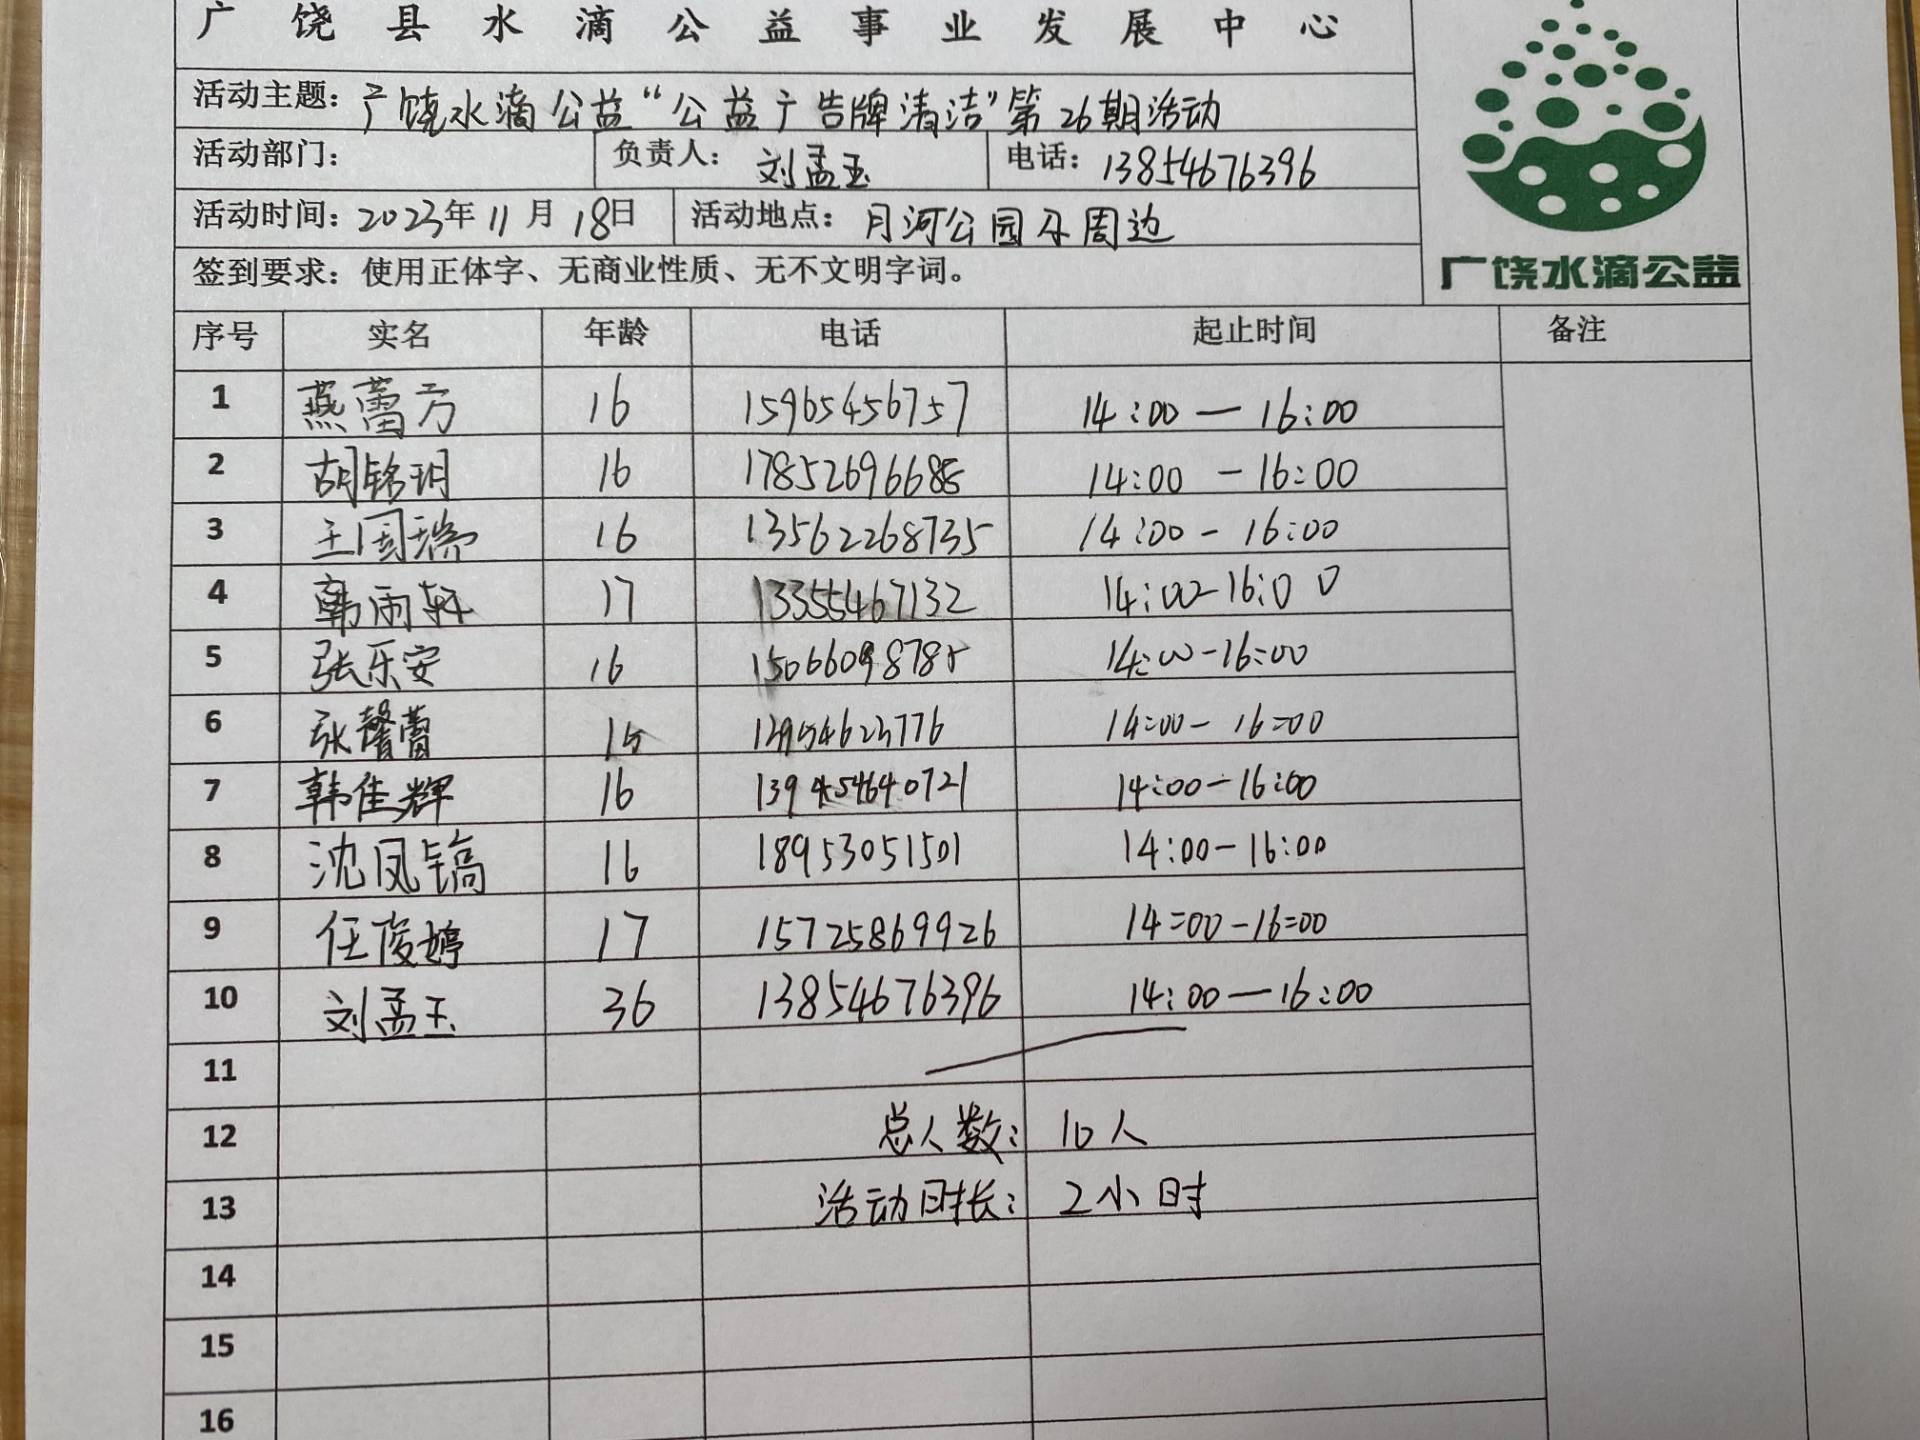 广饶县水滴公益事业发展中心
活动主题：广饶水滴公益“公益广告牌清洁”第26期活动
活动部门： 负责人：刘孟玉 电话：13854676396
活动时间：2023年11月18日 活动地点：月河公园及周边
签到要求：使用正体字、无商业性质、无不文明字词。
广饶水滴公益
序号 实名 年龄 电话 起止时间 备注
1 燕蕾方 16 15965456757 14:00—16:00
2 胡铭玥 16 14:00-16:00
3 王国瑞 16 13562268735 14:00-16:00
4 韩雨轩 17 13355467132 14:00-16:00
5 张乐安 16 14:00-16:00
6 张馨蕾 15 14:00-16:00
7 韩佳辉 16 14:00-16:00
8 沈凤镐 16 18953051501 14:00-16:00
9 任俊婷 17 15725869926 14=00-16=00
10 刘孟玉 36 13854676396 14:00—16:00
11
12 总人数：10人
13 活动时长：2小时
14
15
16